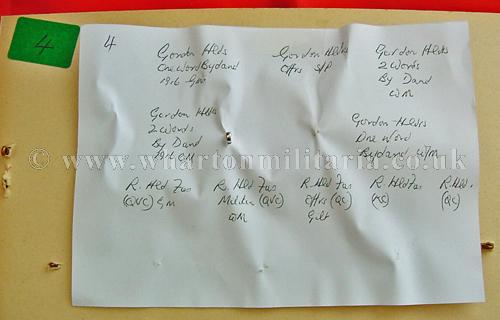 4
4
Gordon Hldrs
One Word Bydand
1916 GM
Gordon Hldrs
Offrs S/P
Gordon Hldrs
2 Words
By Dand
WM
Gordon Hldrs
2 Words
By Dand
1916 GM
Gordon Hldrs
One Word
Bydand W/M
© www.whartonmilitaria.co.uk
R. Hld Fus
(QVC) GM
R. Hld Fus
Militia (QVC)
WM
R. Hld Fus
Offrs (QC)
Gilt
R. Hld Fus
(KC)
R. Hld
(QC)